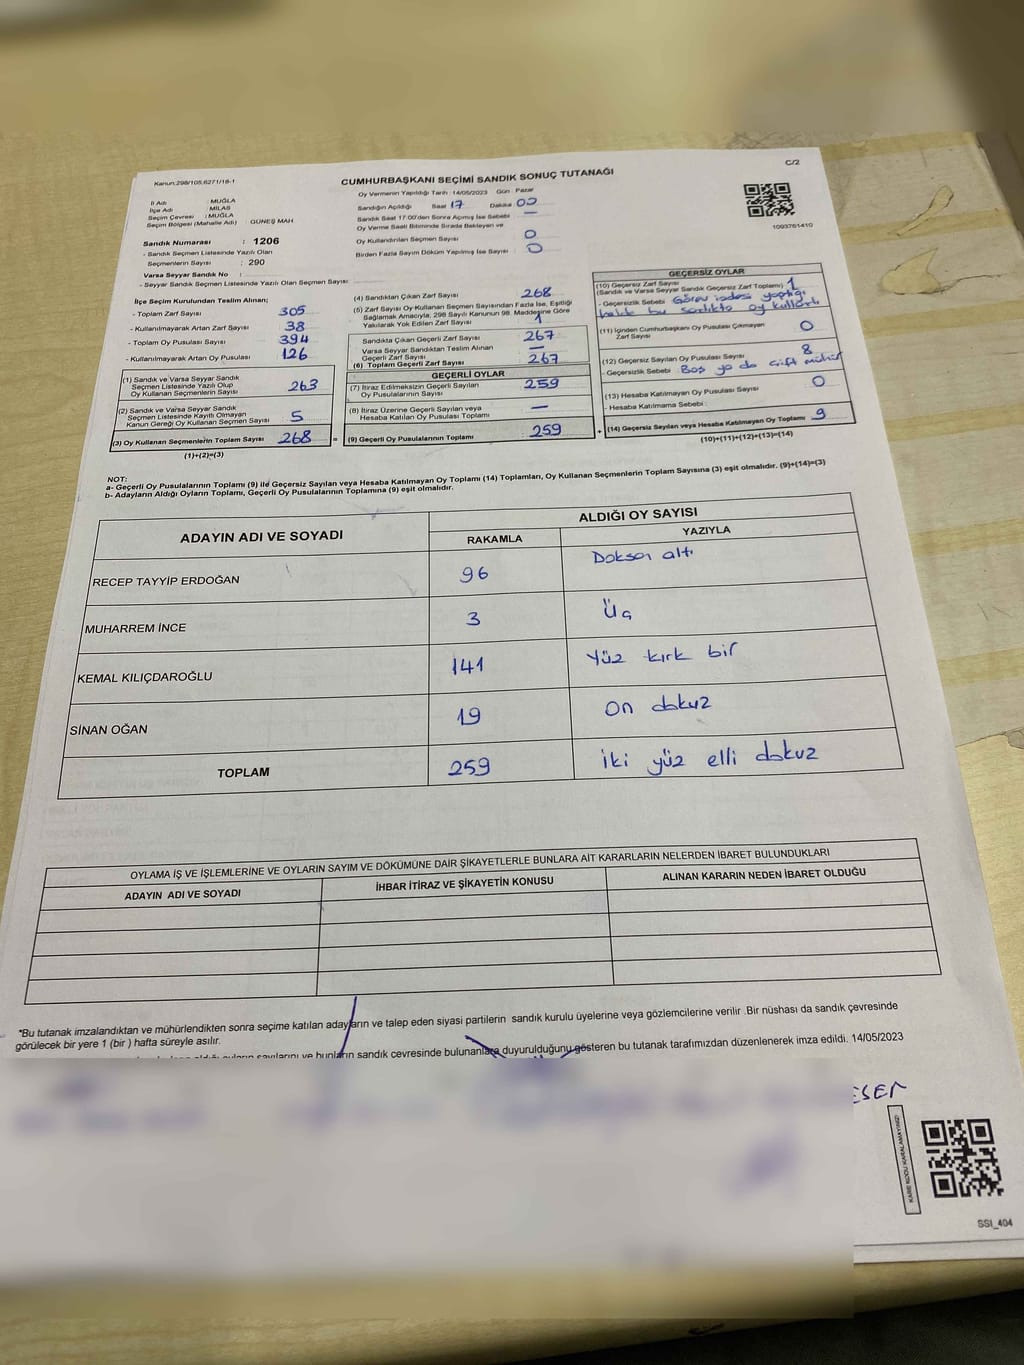 Kanun:298/105,6271/18-1
C/2
CUMHURBAŞKANI SEÇİMİ SANDIK SONUÇ TUTANAĞI
Oy Vermenin Yapıldığı Tarih :14/05/2023 Gün : Pazar
İl Adı : MUĞLA
İlçe Adı : MİLAS
Seçim Çevresi : MUĞLA
Seçim Bölgesi (Mahalle Adı) : GÜNEŞ MAH
Sandık Numarası : 1206
- Sandık Seçmen Listesinde Yazılı Olan
Seçmenlerin Sayısı : 290
Varsa Seyyar Sandık No :
- Seyyar Sandık Seçmen Listesinde Yazılı Olan Seçmen Sayısı:
Sandığın Açıldığı Saat 17 Dakika 00
Sandık Saat 17:00'den Sonra Açılmış İse Sebebi —
Oy Verme Saati Bitiminde Sırada Bekleyen ve
Oy Kullandırılan Seçmen Sayısı 0
Birden Fazla Sayım Döküm Yapılmış İse Sayısı 0
1003761410
İlçe Seçim Kurulundan Teslim Alınan;
- Toplam Zarf Sayısı 305
- Kullanılmayarak Artan Zarf Sayısı 38
- Toplam Oy Pusulası Sayısı 394
- Kullanılmayarak Artan Oy Pusulası 126
(1) Sandık ve Varsa Seyyar Sandık
Seçmen Listesinde Yazılı Olup
Oy Kullanan Seçmenlerin Sayısı 263
(2) Sandık ve Varsa Seyyar Sandık
Seçmen Listesinde Kayıtlı Olmayan
Kanun Gereği Oy Kullanan Seçmen Sayısı 5
(3) Oy Kullanan Seçmenlerin Toplam Sayısı 268
(1)+(2)=(3)
(4) Sandıktan Çıkan Zarf Sayısı 268
(5) Zarf Sayısı Oy Kullanan Seçmen Sayısından Fazla İse, Eşitliği
Sağlamak Amacıyla, 298 Sayılı Kanunun 98. Maddesine Göre
Yakılarak Yok Edilen Zarf Sayısı 1
Sandıkta Çıkan Geçerli Zarf Sayısı 267
Varsa Seyyar Sandıktan Teslim Alınan
Geçerli Zarf Sayısı —
(6) Toplam Geçerli Zarf Sayısı 267
GEÇERLİ OYLAR
(7) İtiraz Edilmeksizin Geçerli Sayılan
Oy Pusulalarının Sayısı 259
(8) İtiraz Üzerine Geçerli Sayılan veya
Hesaba Katılan Oy Pusulası Toplamı —
= (9) Geçerli Oy Pusulalarının Toplamı 259
GEÇERSİZ OYLAR
(10) Geçersiz Zarf Sayısı
(Sandık ve Varsa Seyyar Sandık Geçersiz Zarf Toplamı) 1
- Geçersizlik Sebebi Görev iadesi yaptığı
halde bu sandıkta oy kullandı
(11) İçinden Cumhurbaşkanı Oy Pusulası Çıkmayan
Zarf Sayısı 0
(12) Geçersiz Sayılan Oy Pusulası Sayısı 8
- Geçersizlik Sebebi Boş ya da çift mühür
(13) Hesaba Katılmayan Oy Pusulası Sayısı 0
- Hesaba Katılmama Sebebi :
+ (14) Geçersiz Sayılan veya Hesaba Katılmayan Oy Toplamı 9
(10)+(11)+(12)+(13)=(14)
NOT:
a- Geçerli Oy Pusulalarının Toplamı (9) ile Geçersiz Sayılan veya Hesaba Katılmayan Oy Toplamı (14) Toplamları, Oy Kullanan Seçmenlerin Toplam Sayısına (3) eşit olmalıdır. (9)+(14)=(3)
b- Adayların Aldığı Oyların Toplamı, Geçerli Oy Pusulalarının Toplamına (9) eşit olmalıdır.
ADAYIN ADI VE SOYADI
ALDIĞI OY SAYISI
RAKAMLA YAZIYLA
RECEP TAYYİP ERDOĞAN 96 Doksan altı
MUHARREM İNCE 3 Üç
KEMAL KILIÇDAROĞLU 141 Yüz kırk bir
SİNAN OĞAN 19 On dokuz
TOPLAM 259 iki yüz elli dokuz
OYLAMA İŞ VE İŞLEMLERİNE VE OYLARIN SAYIM VE DÖKÜMÜNE DAİR ŞİKAYETLERLE BUNLARA AİT KARARLARIN NELERDEN İBARET BULUNDUKLARI
ADAYIN ADI VE SOYADI İHBAR İTİRAZ VE ŞİKAYETİN KONUSU ALINAN KARARIN NEDEN İBARET OLDUĞU
*Bu tutanak imzalandıktan ve mühürlendikten sonra seçime katılan adayların ve talep eden siyasi partilerin sandık kurulu üyelerine veya gözlemcilerine verilir .Bir nüshası da sandık çevresinde
görülecek bir yere 1 (bir ) hafta süreyle asılır.
oyların sayılarını ve bunların sandık çevresinde bulunanlara duyurulduğunu gösteren bu tutanak tarafımızdan düzenlenerek imza edildi. 14/05/2023
KARE KODU KARALAMAYINIZ!
SSI_404